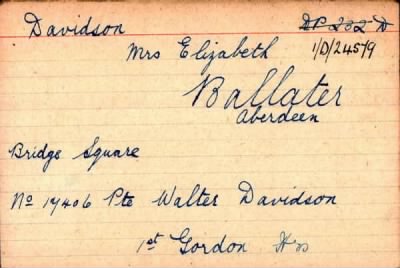 Davidson
DP 282 D
1/D/2459
Mrs Elizabeth
Ballater
Aberdeen
Bridge Square
No 17406 Pte Walter Davidson
1st Gordon Hrs